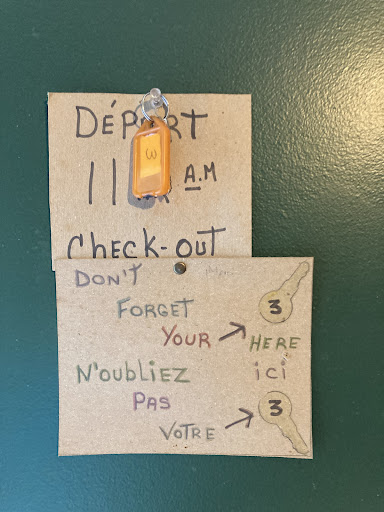 DÉPART
11 A.M
CHECK-OUT
DON'T
FORGET
YOUR → 3
HERE
N'OUBLIEZ ici
PAS
VOTRE → 3
3